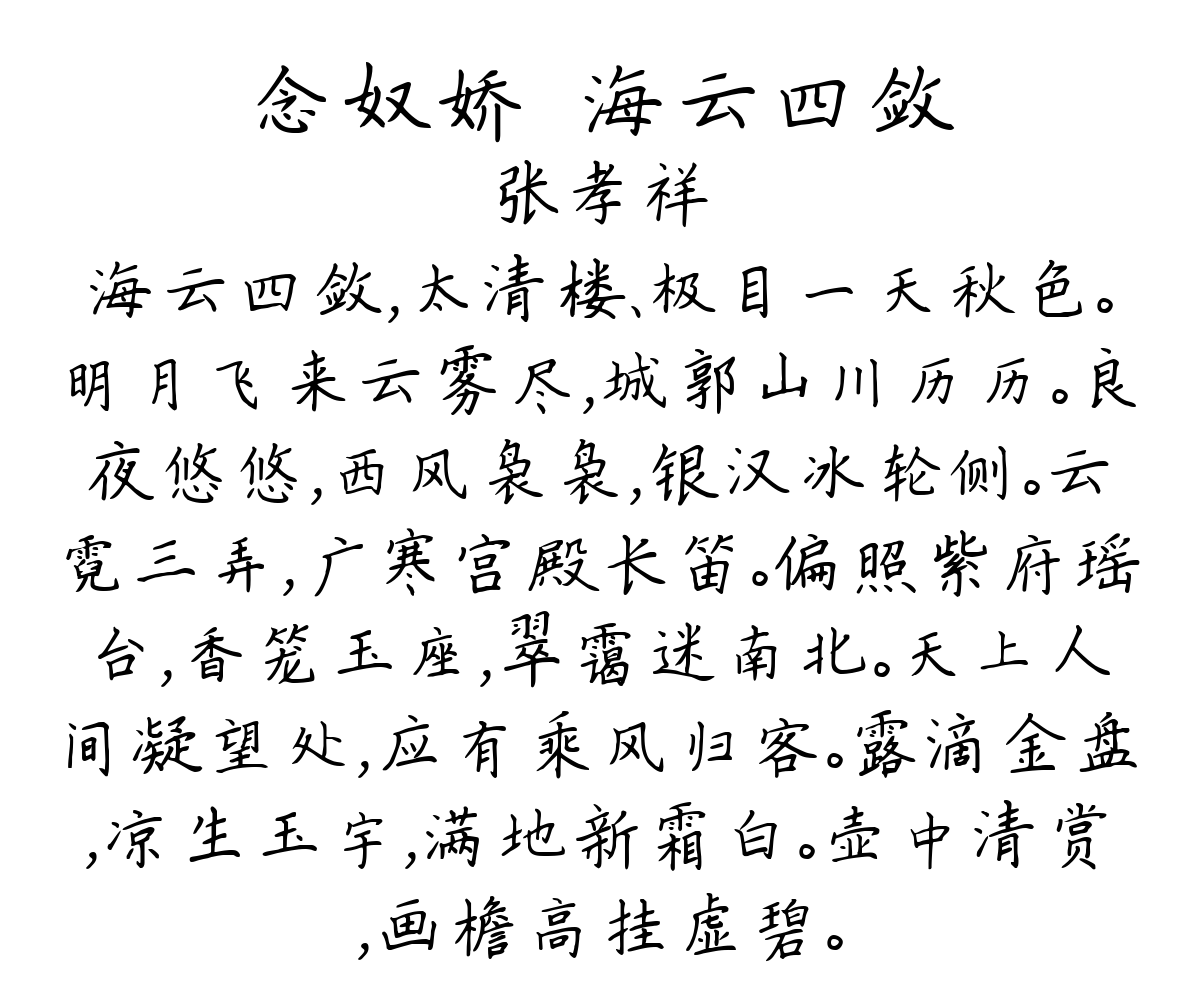 念奴娇 海云四敛
张孝祥
海云四敛,太清楼、极目一天秋色。
明月飞来云雾尽,城郭山川历历。良
夜悠悠,西风袅袅,银汉冰轮侧。云
霓三弄,广寒宫殿长笛。偏照紫府瑶
台,香笼玉座,翠霭迷南北。天上人
间凝望处,应有乘风归客。露滴金盘
,凉生玉宇,满地新霜白。壶中清赏
,画檐高挂虚碧。